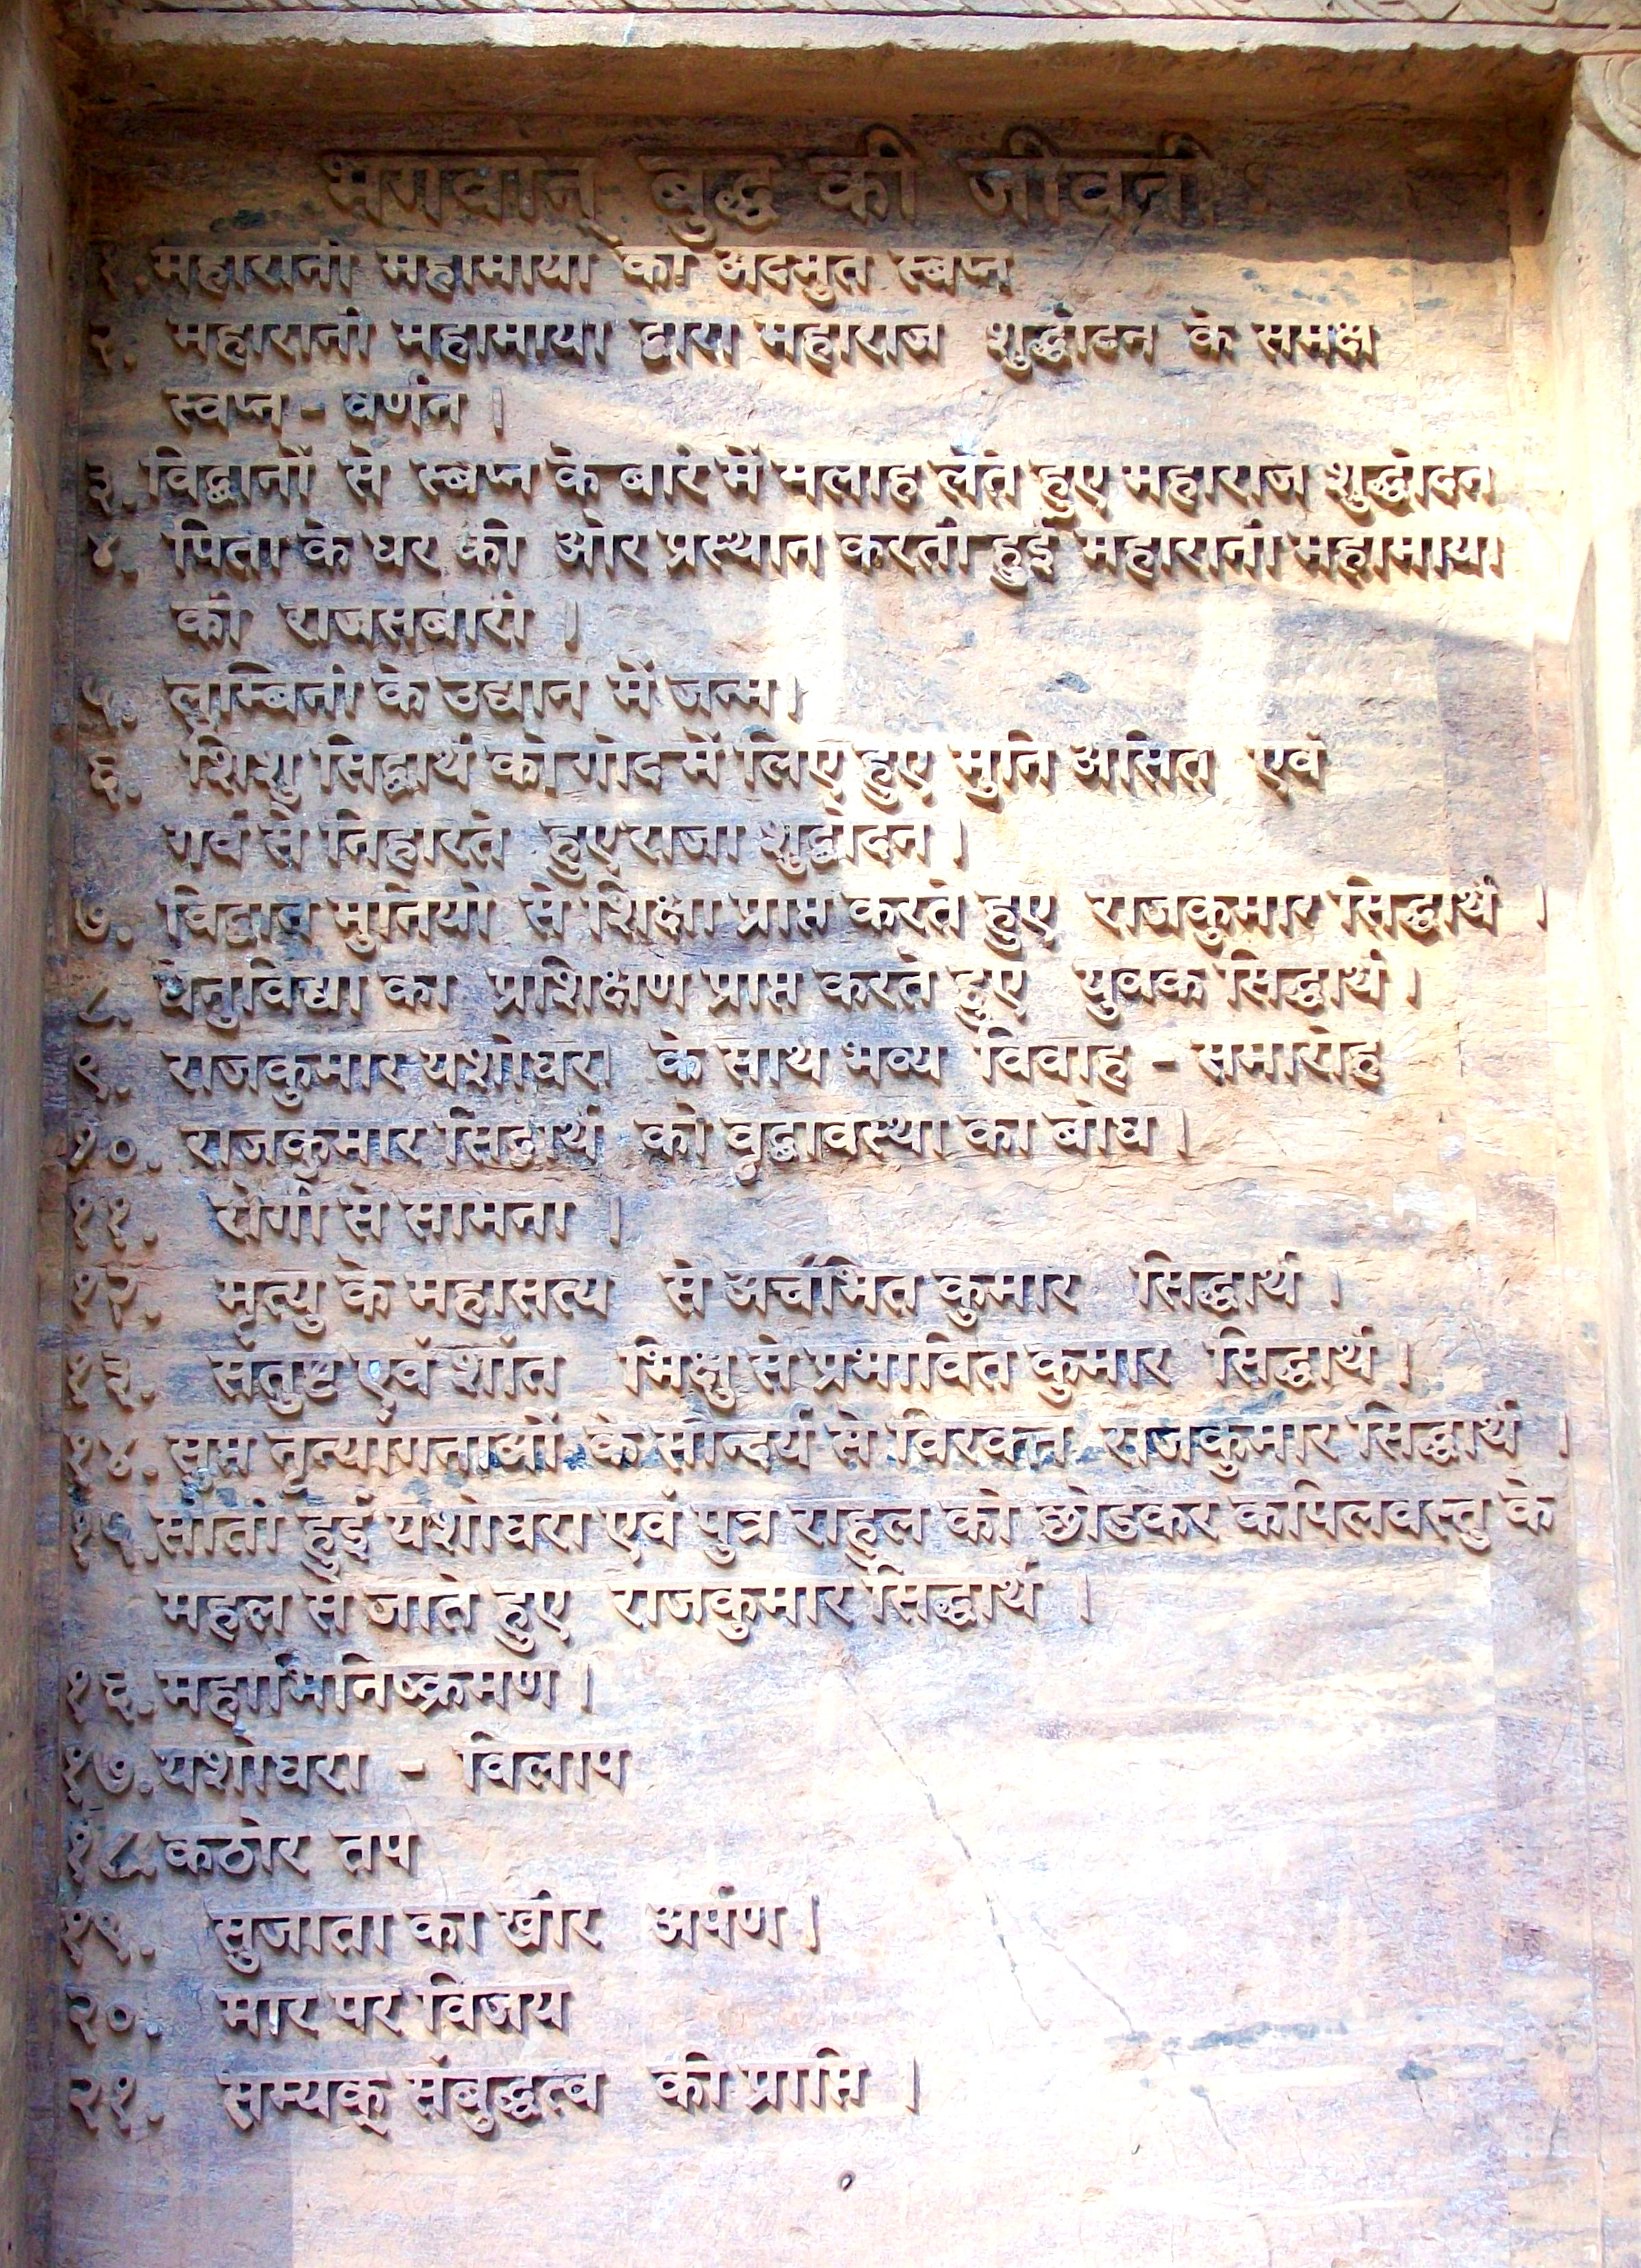 भगवान् बुद्ध की जीवनी
१. महारानी महामाया का अदभुत स्बप्न
२. महारानी महामाया द्वारा महाराज शुद्धोदन के समक्ष
स्वप्न - वर्णन ।
३. विद्वानों से स्बप्न के बारे में सलाह लेते हुए महाराज शुद्धोदन
४. पिता के घर की ओर प्रस्थान करती हुई महारानी महामाया
की राजसबारी ।
५. लुम्बिनी के उद्यान में जन्म।
६. शिशु सिद्धार्थ को गोद में लिए हुए मुनि असित एवं
गर्व से निहारते हुए राजा शुद्धोदन ।
७. विद्वान मुनियों से शिक्षा प्राप्त करते हुए राजकुमार सिद्धार्थ ।
८. धनुविद्या का प्रशिक्षण प्राप्त करते हुए युवक सिद्धार्थ ।
९. राजकुमार यशोधरा के साथ भव्य विवाह - समारोह
१०. राजकुमार सिद्धार्थ को वृद्धावस्था का बोध ।
११. रोगी से सामना ।
१२. मृत्यु के महासत्य से अचंभित कुमार सिद्धार्थ ।
१३. संतुष्ट एवं शांत भिक्षु से प्रभावित कुमार सिद्धार्थ ।
१४. सुप्त नृत्यांगनाओं के सौन्दर्य से विरक्त राजकुमार सिद्धार्थ ।
१५. सोती हुई यशोधरा एवं पुत्र राहुल को छोडकर कपिलवस्तु के
महल से जाते हुए राजकुमार सिद्धार्थ ।
१६. महाभिनिष्क्रमण ।
१७. यशोधरा - विलाप
१८. कठोर तप
१९. सुजाता का खीर अर्पण ।
२०. मार पर विजय
२१. सम्यक् संबुद्धत्व की प्राप्ति ।